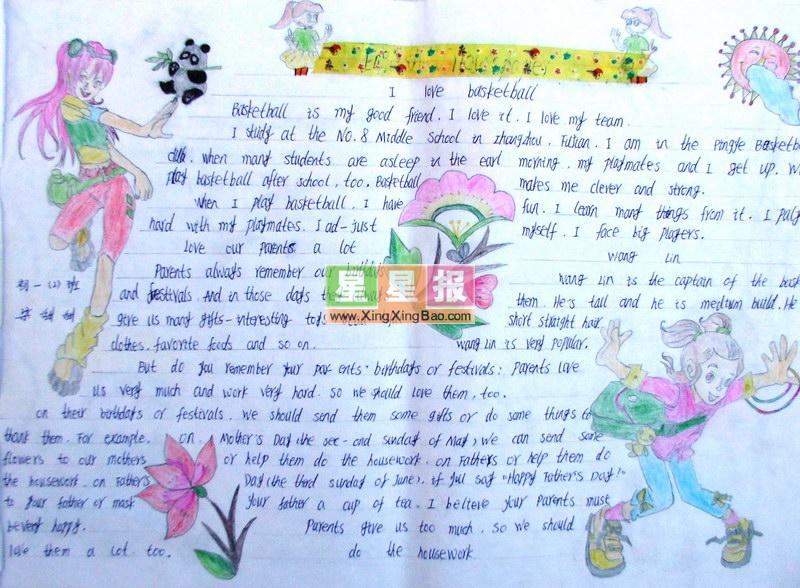 I love basketball
Basketball is my good friend. I love it. I love my team.
I study at the No. 8 Middle School in Zhangzhou, Fujian. I am in the Pingfe Basketba
club. when many students are asleep in the earl morning. my playmates and I get up. W
Play basketball after school, too. Basketball makes me clever and strong.
when I play basketball, I have fun. I learn many things from it. I palg
hard with my playmates. I ad-just myself. I face big players.
love our parents a lot
Wang Lin
Parents always remember our
wang Lin is the captain of the bask
and festivals And in those days
them. He's tall and he is medium build. He
give us many gifts-interesting
short straight hair
clothes. favorite foods and so on.
wang Lin is very popular.
But do you remember your par-ents: birthdays or festivals: parents love
us very much and work very hard. so we should love them, too.
on their birthdays or festivals. we should send them some gifts or do some things to
thank them. For example. on Mother's Day (the sec-ond sunday of May) we can send some
flowers to our mothers or help them do the housework. on Fathers or help them do
the housework. on Father's Day (the third sunday of June). if yul say "Happy Father's Day!"
to your father or mast your father a cup of tea. I believe your parents must
be very happy. Parents give us too much. so we should
love them a lot. too. do the housework
初一(2)班
星星报
www.XingXingBao.com